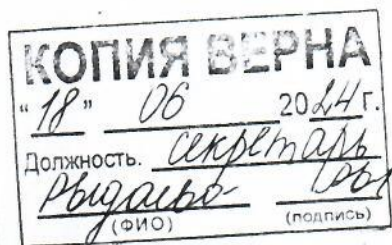 КОПИЯ ВЕРНА
"18" 06 2024 г.
Должность. секретарь
(ФИО) (подпись)